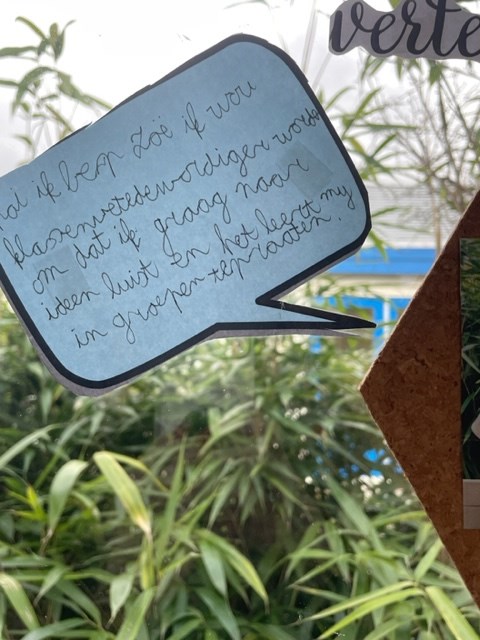 verte
hoi ik ben Zoë ik wou
klassenvertedewordiger worde
om dat ik graag naar
ideen luist En het leert my
in groepen te praaten.